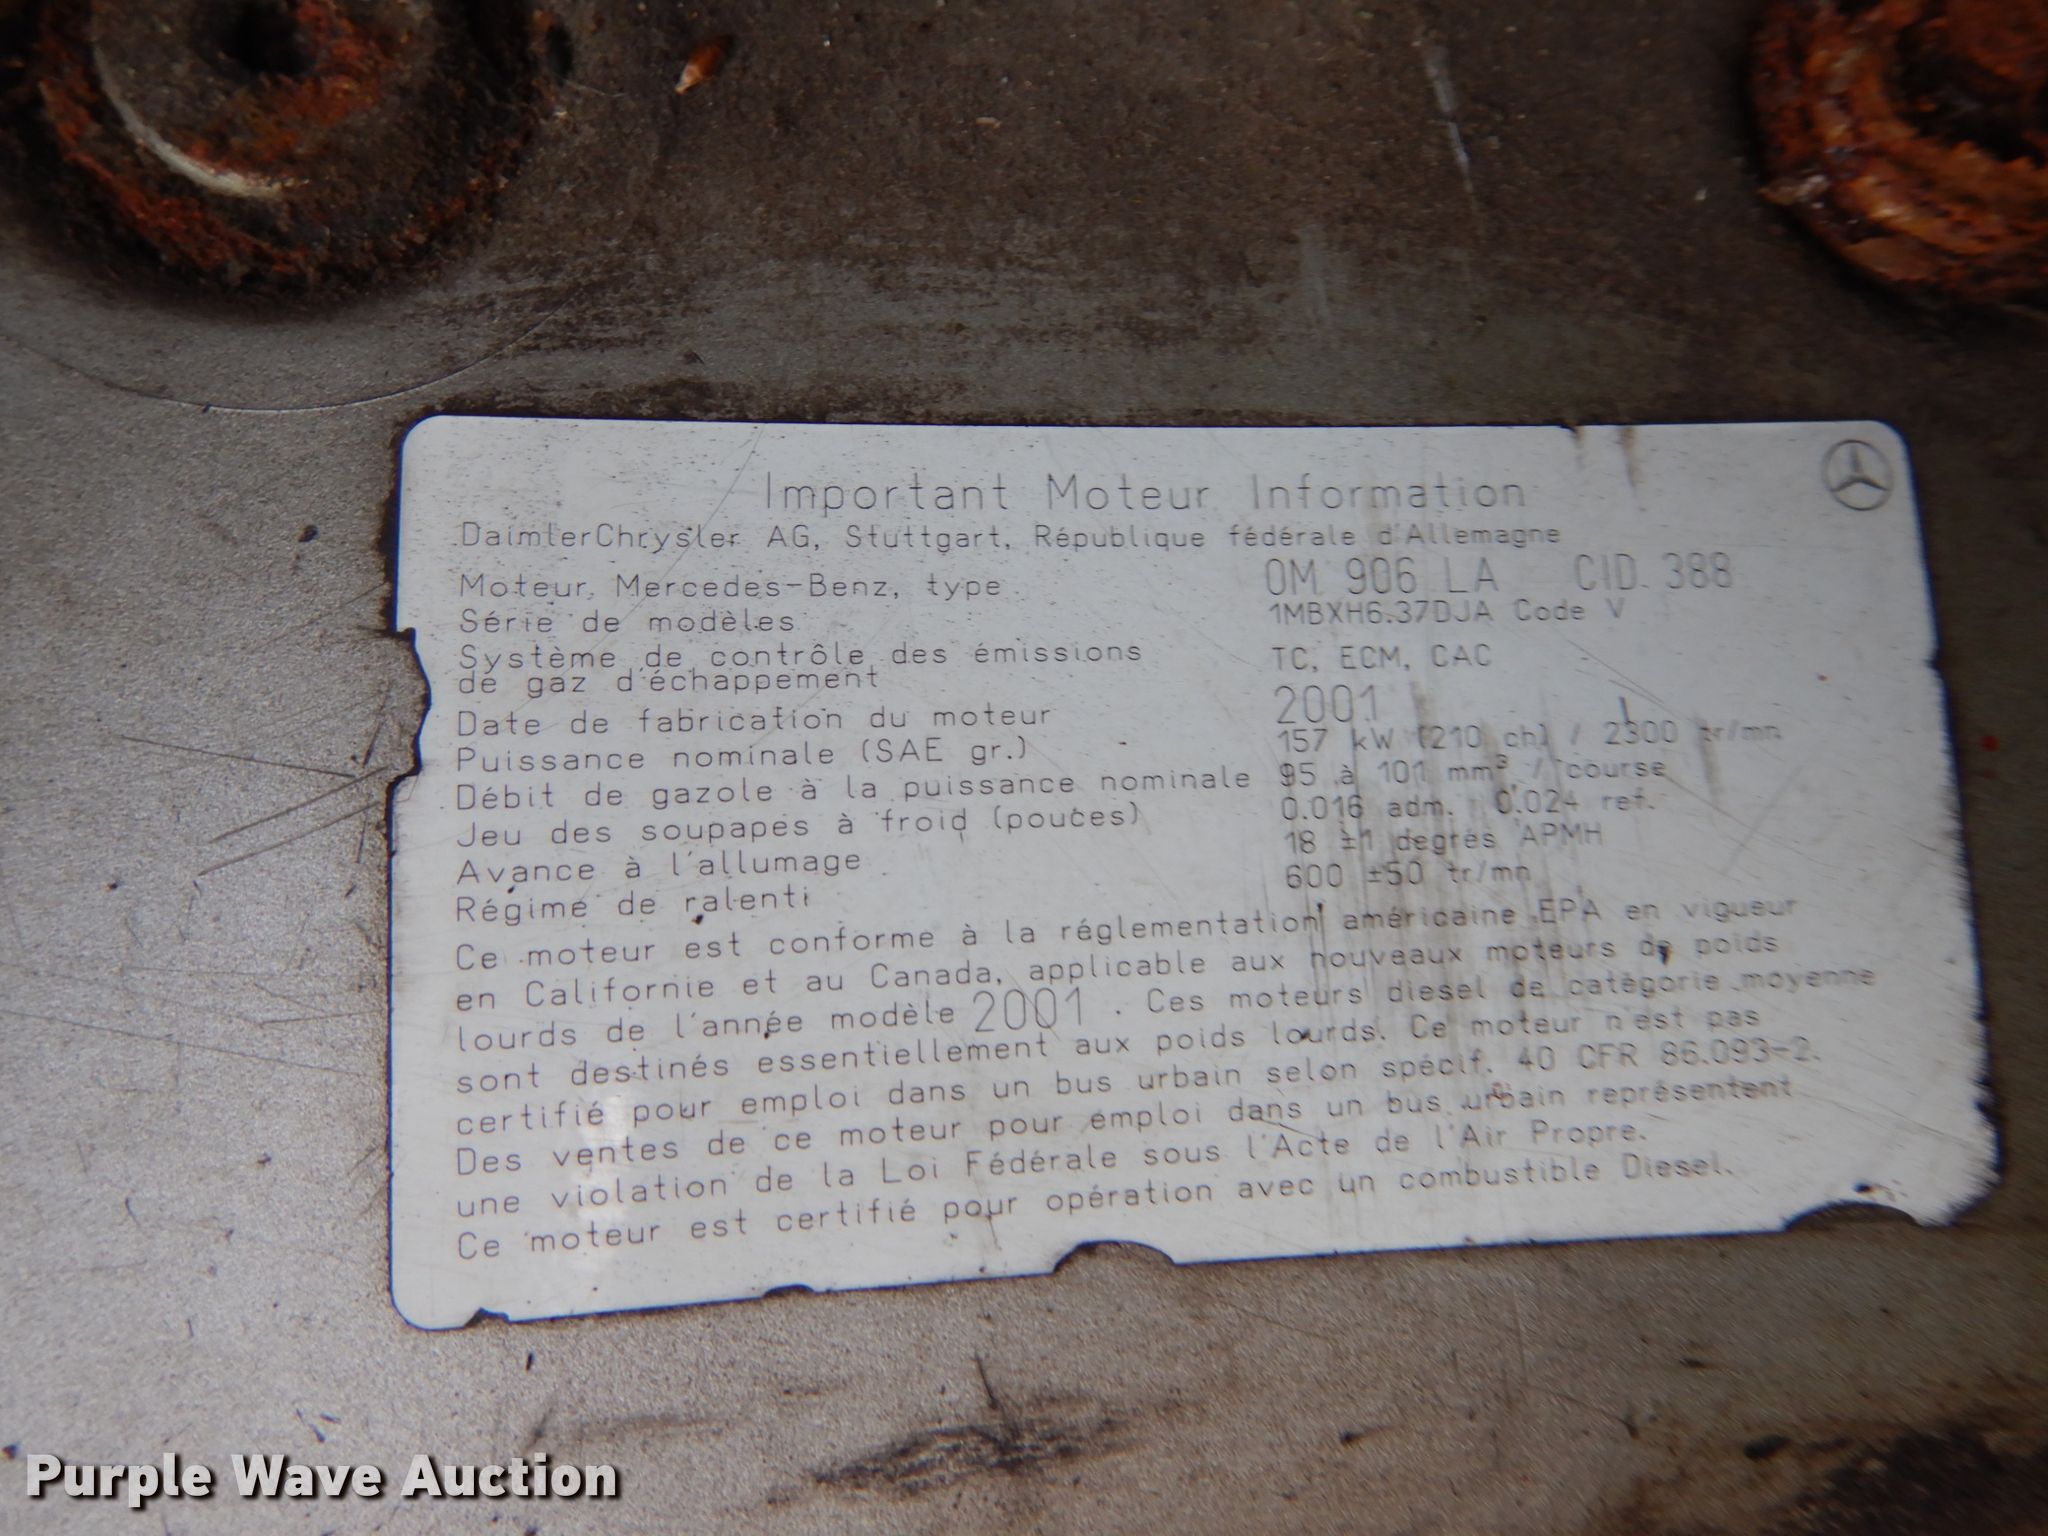 Important Moteur Information
DaimlerChrysler AG, Stuttgart, République fédérale d'Allemagne
Moteur, Mercedes-Benz, type OM 906 LA CID. 388
Série de modèles 1MBXH6.37DJA Code V
Système de contrôle des émissions
de gaz d'échappement TC, ECM, CAC
Date de fabrication du moteur 2001
Puissance nominale (SAE gr.) 157 kW (210 ch) / 2300 tr/mn
Débit de gazole à la puissance nominale 95 à 101 mm³ / course
Jeu des soupapes à froid (pouces) 0.016 adm. 0.024 ref.
Avance à l'allumage 18 ±1 degrés APMH
Régime de ralenti 600 ±50 tr/mn
Ce moteur est conforme à la réglementation américaine EPA en vigueur
en Californie et au Canada, applicable aux nouveaux moteurs de poids
lourds de l'année modèle 2001. Ces moteurs diesel de catégorie moyenne
sont destinés essentiellement aux poids lourds. Ce moteur n'est pas
certifié pour emploi dans un bus urbain selon spécif. 40 CFR 86.093-2.
Des ventes de ce moteur pour emploi dans un bus urbain représentent
une violation de la Loi Fédérale sous l'Acte de l'Air Propre.
Ce moteur est certifié pour opération avec un combustible Diesel.
Purple Wave Auction